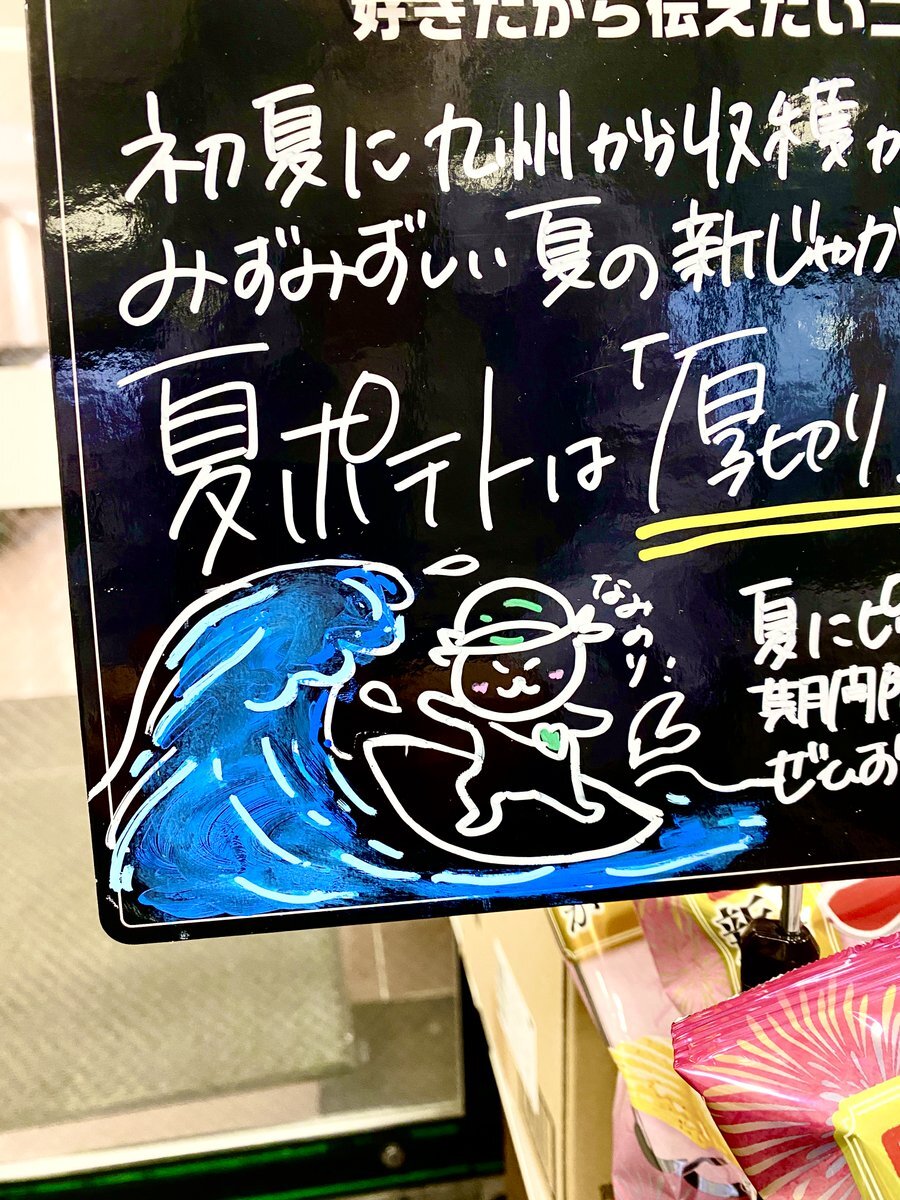 好きだから伝えたいこ
初夏に九州から収穫が
みずみずしい夏の新じゃが
夏ポテトは「厚切り」
なみのり!
夏にピ
期間限
ぜひお
新